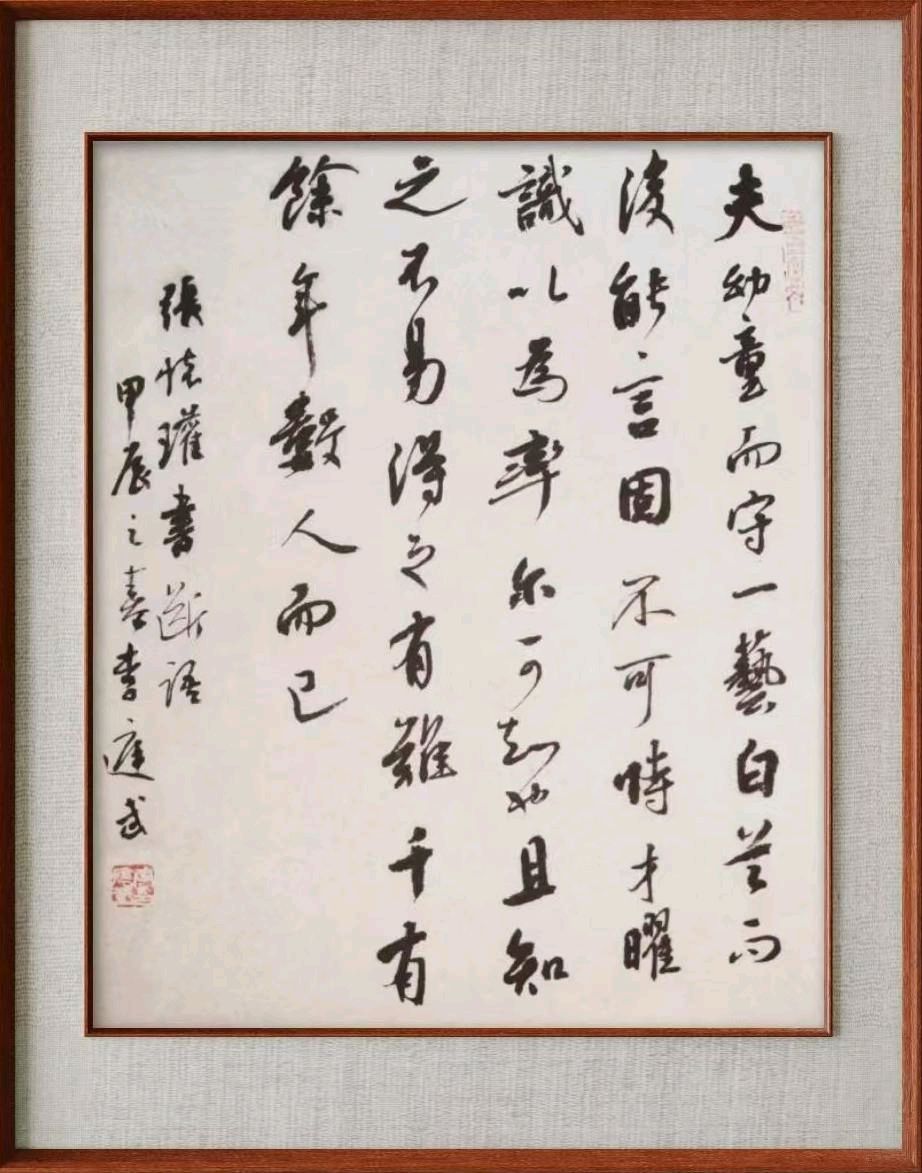 夫幼童而守一藝白首而
後能言固不可恃才曜
識以為率尔可知也且知
之不易得之有難千有
餘年數人而已
張懷瓘書斷語
甲辰之春李庭武